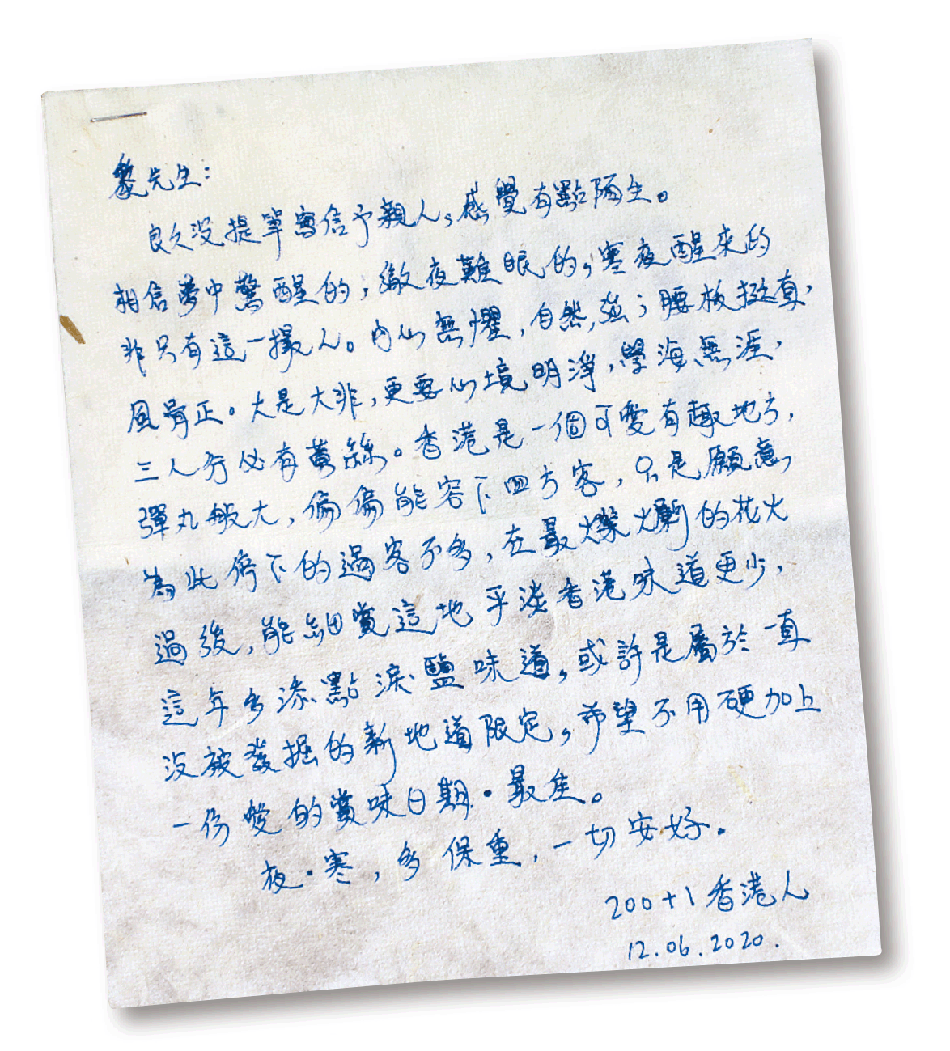 黎先生：
良久沒提筆寫信予親人，感覺有點陌生。
相信夢中驚醒的，徹夜難眠的，寒夜醒來的
非只有這一撮人。內心無懼，自然強；腰板挺直，
風骨正。大是大非，更要心境明淨，學海無涯，
三人行必有黃絲。香港是一個可愛有趣地方，
彈丸般大，偏偏能容下四方客，只是願意
為此停下的過客不多，在最燦爛的花火
過後，能細賞這地平淡香港味道更少，
這年多添點淚鹽味道，或許是屬於一直
沒被發掘的新地道限定，希望不用硬加上
一份愛的賞味日期．最佳。
夜．寒，多保重，一切安好。
200+1香港人
12.06.2020.